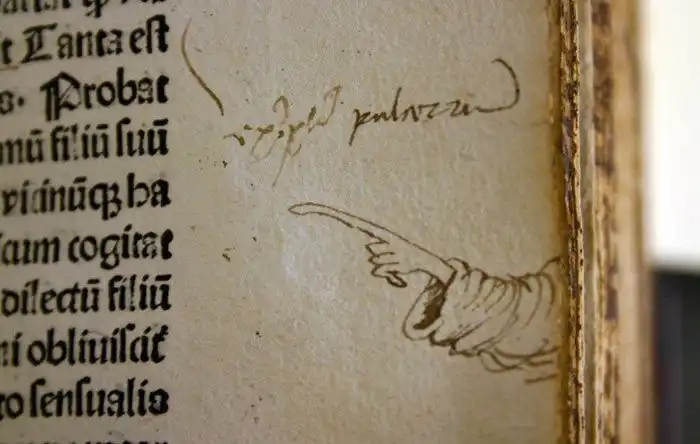 t Tanta eſt
s. Probat
mū filiū ſuū
vicinūqꝫ ha
icum cogitat
dilectū filiū
ni obliuiſcit᷑
ro ſenſualis